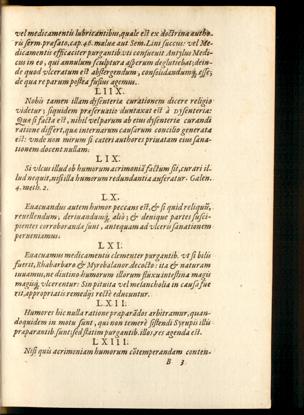 vel medicamentis lubricantibus, quale est ex doctrina autho-
ris serm. præfato, cap. 46. malue aut Sem. Lini succus: vel Me-
dicamentis efficaciter purgantib. vti consueuit. Antylus Medi-
cus in eo, qui annulum sculptura asperum deglutiebat; dein-
de quod vlceratum est abstergendum, consolidandumq́; esse;
de qua re parum postea fusius agemus.
LIIX.
Nobis tamen illam dysenteriæ curationem dicere religio
videtur; siquidem præseruatio duntaxat est à Dysenteria:
Quæ si facta est, nihil vel parum ab eius dysenteriæ curandi
ratione differt, quæ internarum causarum concilio generata
est: vnde non mirum si cæteri authores priuatam eius sana-
tionem docent nullam:
LIX.
Si vlcus illud ob humorum acrimoniã factum sit, curari il-
lud nequit, nisi illa humorum redundantia auferatur. Galen.
4. meth. 2.
LX.
Euacuandus autem humor peccans est, & si quid reliquũ,
reuellendum, deriuandumq́; aliò; & denique partes susci-
pientes corroborandæ sunt, antequam ad vlceris sanationem
perueniamus.
LXI.
Euacuamus medicamentis clementer purgantib. vt si bilis
fuerit, Rhabarbaro & Myrobalanor. decocto: ita & naturam
iuuamus, ne diutino humorum illorum fluxu intestina magis
magisq́; vlcerentur: Sin pituita vel melancholia in causa fue
rit, appropriatis remedijs rectè educuntur.
LXII.
Humores hic nulla ratione præparãdos arbitramur, quan-
doquidem in motu sunt, qui non temerè sistendi Syrupis illis
præparantib. sunt; sed statim purgantib. illor. res agenda est.
LXIII.
Nisi quis acrimoniam humorum cõtemperandam conten-
B 3